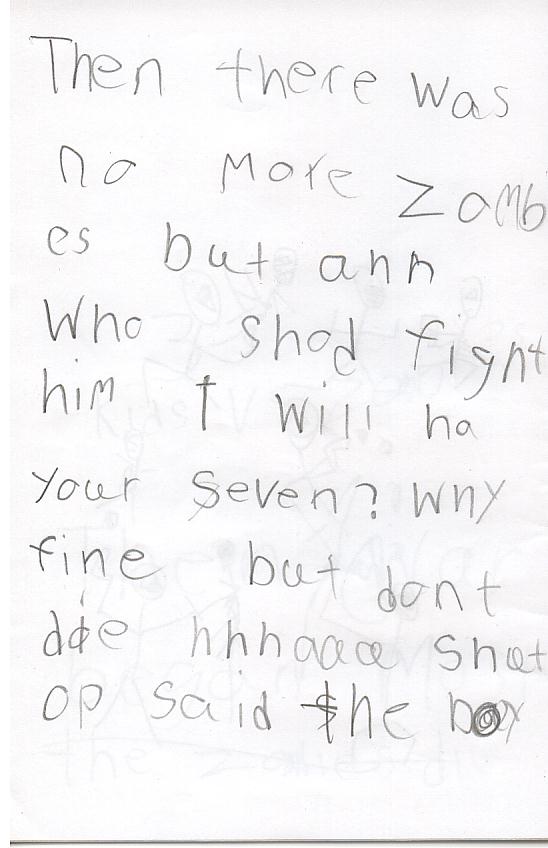 Then there was
no more zomb
es but ann
Who shod fight
him I will ha
your seven? Why
fine but dont
die hhhaaaa Shut
op said the boy